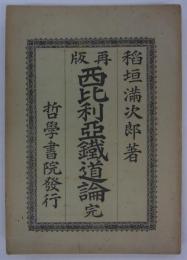 稻垣滿次郎著
再版
西比利亞鐵道論 完
哲學書院發行